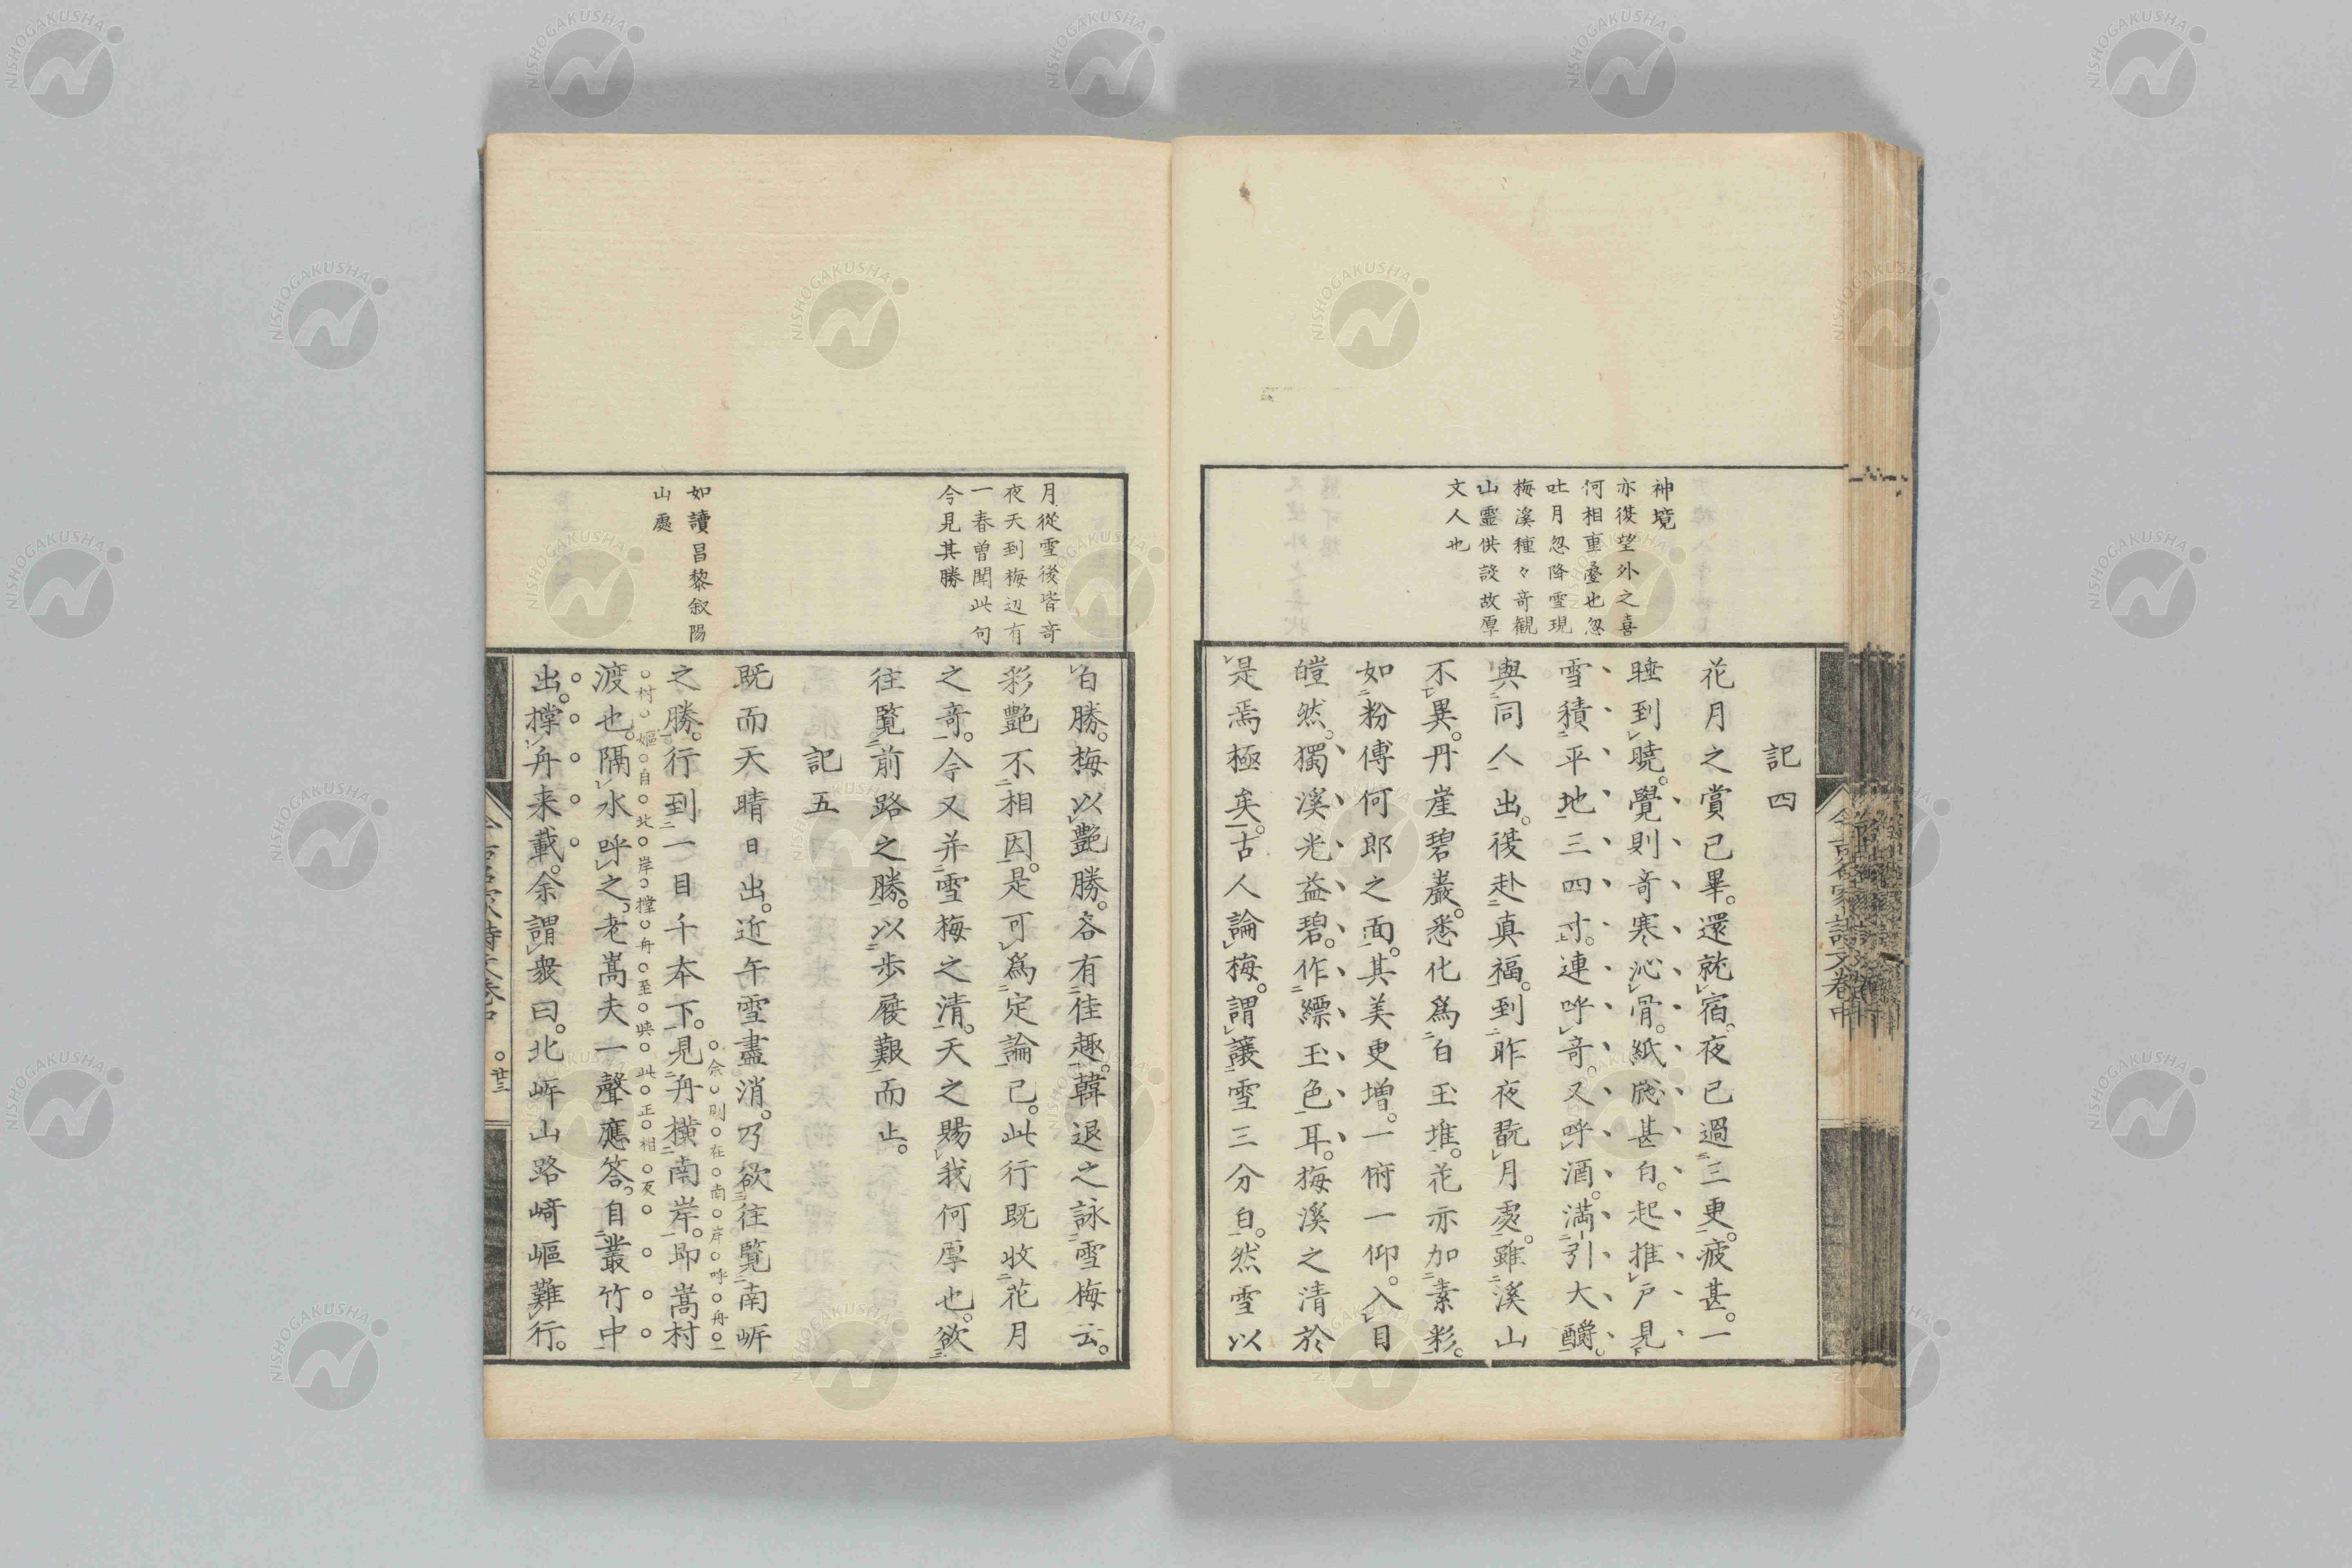 神境
亦従望外之喜
何相重疊也忽
吐月忽降雪現
梅溪種々奇観
山靈供談故厚
文人也
記四
花月之賞已畢。還就宿。夜已過三更。疲甚。一
睡到曉。覺則奇寒沁骨。紙牕甚白。起推戶見
雪積平地三四寸。連呼奇。又呼酒。満引大釂。
與同人出。復赴真福。到昨夜翫月處。雖溪山
不異。丹崖碧巖。悉化爲白玉堆。花亦加素彩。
如粉傅何郎之面。其美更増。一俯一仰。入目
皚然。獨溪光益碧。作縹玉色耳。梅溪之清於
是焉極矣。古人論梅。謂讓雪三分白。然雪以
今古名家詩文卷中
月從雪後皆奇
夜天到梅辺有
一春曽聞此句
今見其勝
如讀昌黎叙陽
山處
白勝。梅以艷勝。各有佳趣。韓退之詠雪梅云。
彩艷不相因。是可爲定論已。此行既收花月
之奇。今又并雪梅之清。天之賜我何厚也。欲
往覧前路之勝。以歩屐艱而止。
記五
既而天晴日出。近午雪盡消。乃欲往覽南岍
之勝。行到一目千本下。見舟横南岸。即嵩村
余則在南岸呼舟
渡也。隔水呼之。老嵩夫一聲應答。自叢竹中
村嫗自北岸撑舟至 此正相反
出。撑舟来載。余謂衆曰。北岍山路崎嶇難行。
廿三